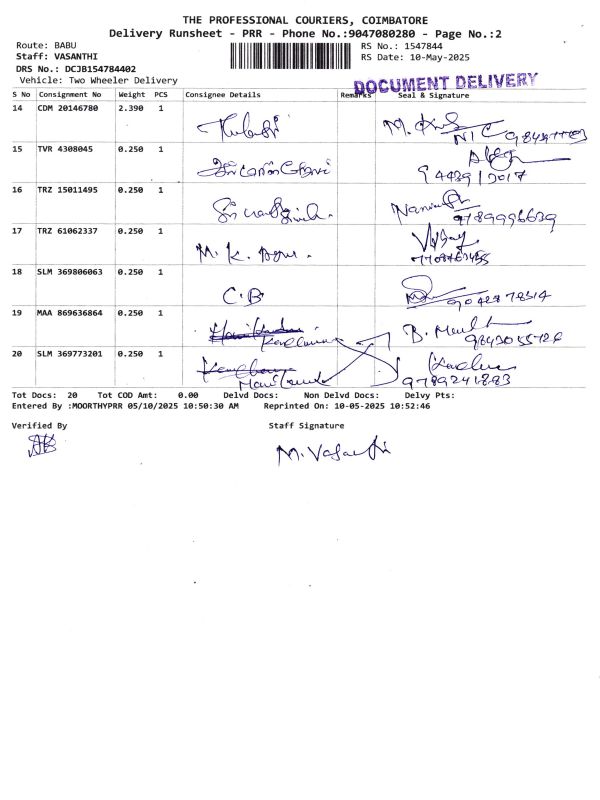 THE PROFESSIONAL COURIERS, COIMBATORE
Delivery Runsheet - PRR - Phone No.:9047080280 - Page No.:2
Route: BABU
Staff: VASANTHI
DRS No.: DCJB154784402
Vehicle: Two Wheeler Delivery
RS No.: 1547844
RS Date: 10-May-2025
DOCUMENT DELIVERY
S No Consignment No Weight PCS Consignee Details Remarks Seal & Signature
14 CDM 20146780 2.390 1
15 TVR 4308045 0.250 1
16 TRZ 15011495 0.250 1
9789996639
17 TRZ 61062337 0.250 1 M. K.
18 SLM 369806063 0.250 1 C.B
19 MAA 869636864 0.250 1 B.
20 SLM 369773201 0.250 1
9789241883
Tot Docs: 20 Tot COD Amt: 0.00 Delvd Docs: Non Delvd Docs: Delvy Pts:
Entered By :MOORTHYPRR 05/10/2025 10:50:30 AM Reprinted On: 10-05-2025 10:52:46
Verified By Staff Signature
M. Vasanthi